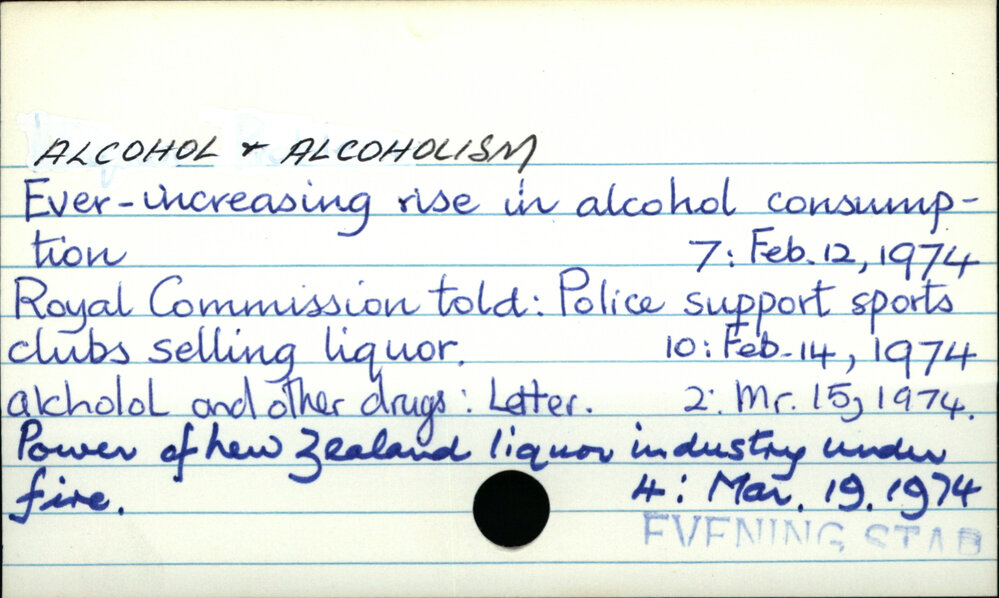 ALCOHOL & ALCOHOLISM
Ever-increasing rise in alcohol consump-
tion 7: Feb. 12, 1974
Royal Commission told: Police support sports
clubs selling liquor. 10: Feb-14, 1974
alcholol and other drugs: Letter. 2: Mr. 15, 1974.
Power of New Zealand liquor industry under
fire. 4: Mar. 19. 1974
EVENING STAR